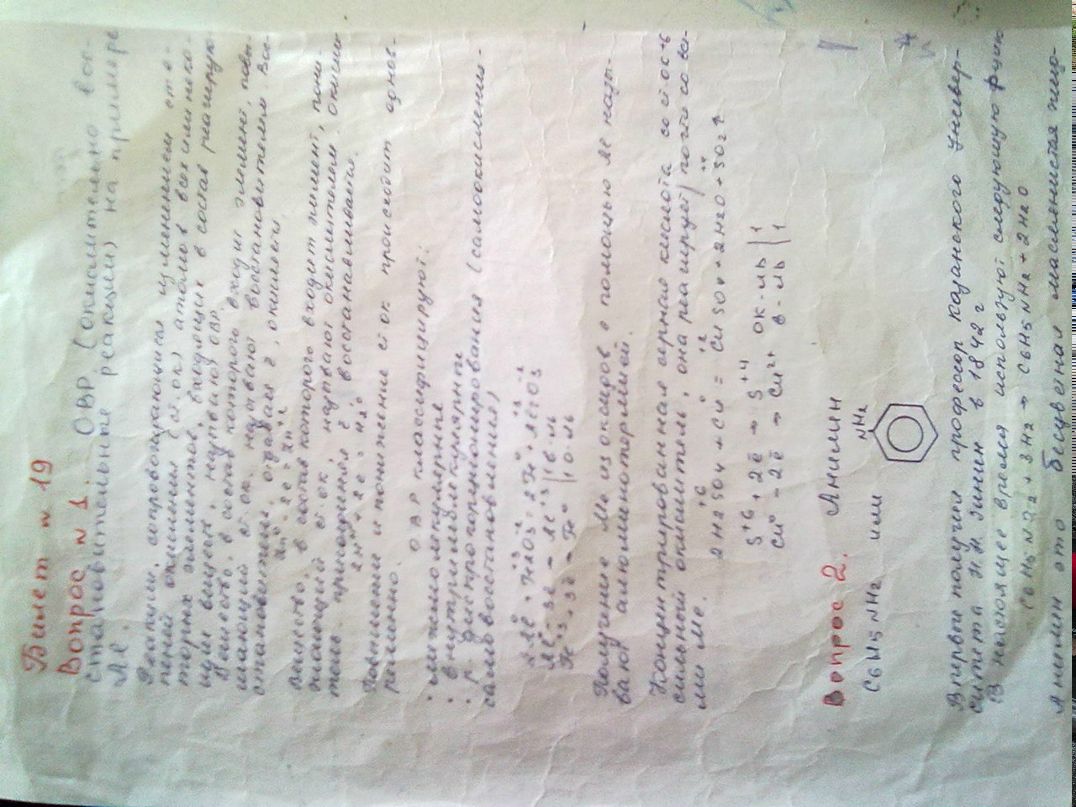 Билет № 19
Вопрос № 1. ОВР (окислительно вос-
становительные реакции) на примере
Al.
Реакции, сопровождающиеся изменением сте-
пеней окисления (ст.ок) атомов всех или неко-
торых элементов, входящих в состав реагирую-
щих веществ, называют ОВР.
Вещество, в состав которого входит элемент, повы-
шающий ст.ок, называют восстановителем. Вос-
становитель отдаёт ē, окисляясь
Zn⁰ - 2ē = Zn⁺²
Вещество, в состав которого входит элемент, пони-
жающий ст.ок, называют окислителем, окисли-
тель присоединяя ē восстанавливается.
2H⁺ + 2ē = H₂⁰
Повышение и понижение ст.ок происходит однов-
ременно.
ОВР классифицируют:
· межмолекулярные
· внутримолекулярные
· р. диспропорционирования (самоокисления-
самовосстановления)
Получение Me из оксидов с помощью Me назы-
вают алюминотермией
Концентрированная серная кислота со ст.ок +6
сильный окислитель, она реагирует почти со все-
ми Me.
2H₂SO₄ + Cu⁰ = CuSO₄ + 2H₂O + SO₂↑
S⁺⁶ + 2ē → S⁺⁴ ок-ль | 1
Cu⁰ - 2ē → Cu²⁺ в-ль | 1
Вопрос 2. Анилин
C₆H₅NH₂ или
NH₂
Впервы получил професор казанского Универ-
ситета Н.Н Зинин в 1842 г
В настоящее время используют следующую р-цию
C₆H₅NO₂ + 3H₂ → C₆H₅NH₂ + 2H₂O
Анилин это бесцветная маслянистая жид-